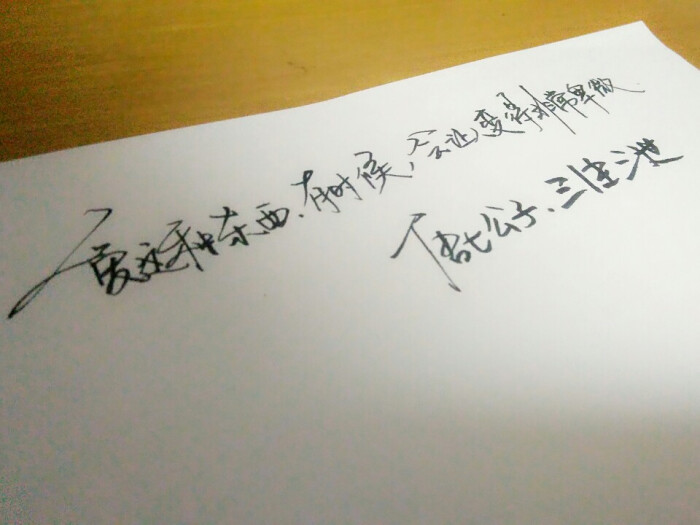 爱这种东西,有时候,会让变得非常卑微
唐七公子、三生三世